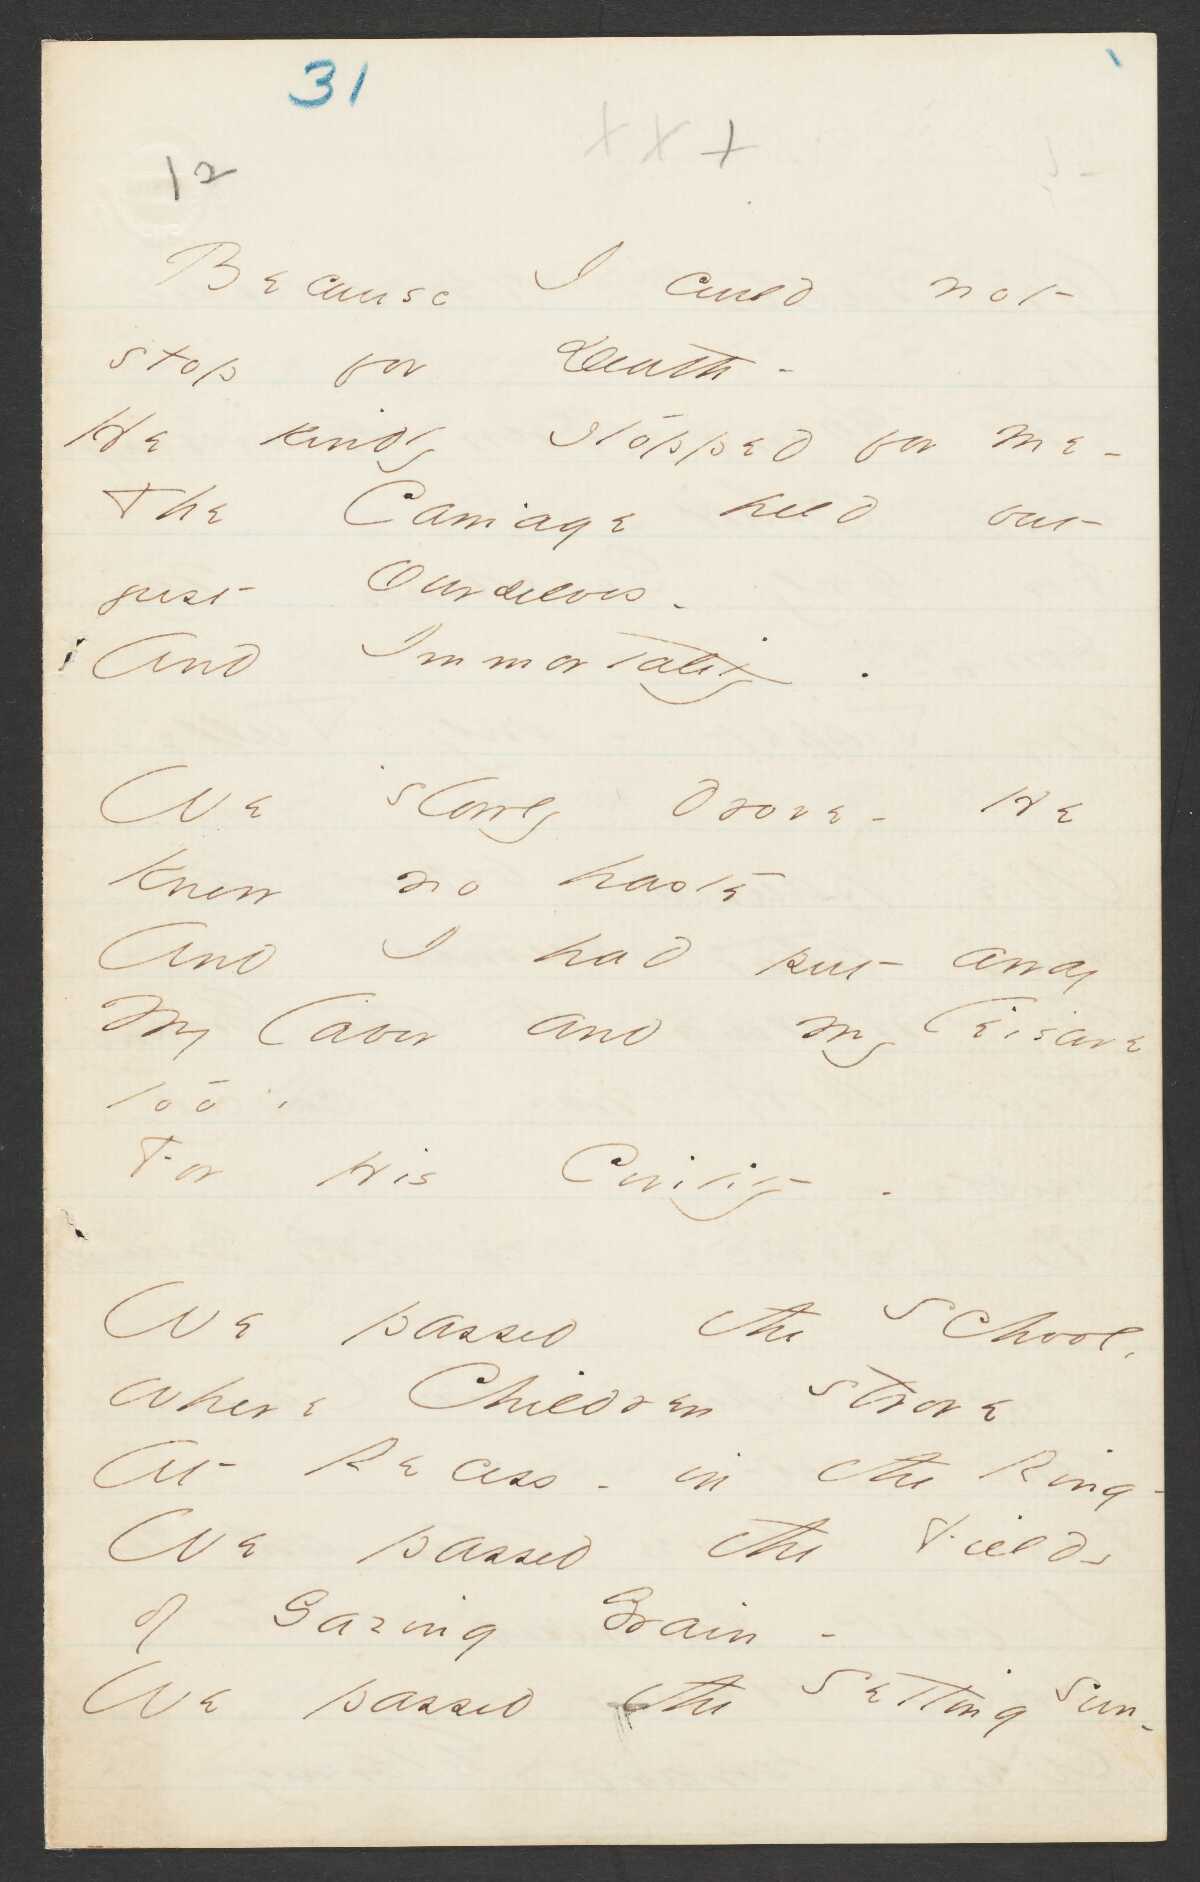 31
X X X
12
Because I could not
stop for Death -
He kindly stopped for me -
The Carriage held but
just Ourselves -
And Immortality .
We slowly drove - He
knew no haste
And I had put away
My labor and my leisure
too ,
For His Civility -
We passed the School,
where Children strove
At Recess - in the Ring -
We passed the Fields
of Gazing Grain -
We passed the Setting Sun -